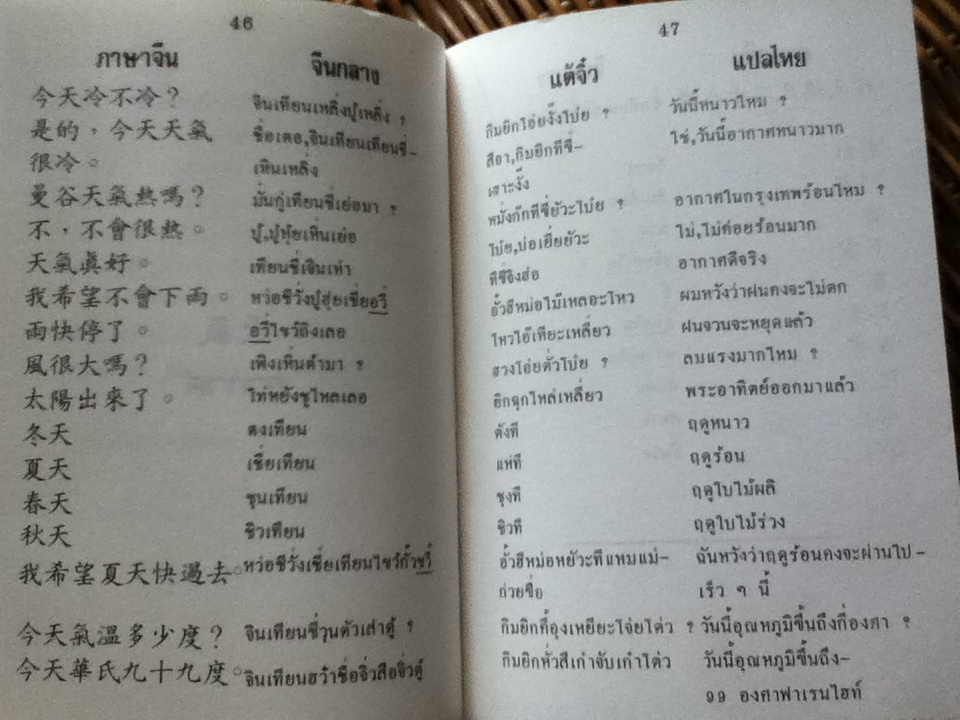 46
ภาษาจีน จีนกลาง
今天冷不冷？ จินเทียนเหลิ่งปู้เหลิ่ง ?
是的，今天天氣 ซื่อเตอ,จินเทียนเทียนชี่-
很冷。 เหินเหลิ่ง
曼谷天氣熱嗎？ มั่นกู่เทียนชี่เย่อมา ?
不，不會很熱。 ปู้,ปู้หุ้ยเหิ่นเย่อ
天氣眞好。 เทียนชี่เจินเห่า
我希望不會下雨。 หว่อซีวั่งปู๋ฮุ่ยเซี่ยอวี๋
雨快停了。 อวี๋ไขว้ถิงเลอ
風很大嗎？ เฟิงเหิ่นต้ามา ?
太陽出來了。 ไท่หยังชูไหลเลอ
冬天 ตงเทียน
夏天 เซี่ยเทียน
春天 ชุนเทียน
秋天 ชิวเทียน
我希望夏天快過去。 หว่อซีวั่งเซี่ยเทียนไขว้กั้วชวี้
今天氣溫多少度？ จินเทียนชี่วุนตัวเส่าตู้ ?
今天華氏九十九度。 จินเทียนฮว๋าซื่อจิ่วสือจิ่วตู้
47
แต้จิ๋ว แปลไทย
กิมยิกโอ่ยงั๊งโบ๋ย ? วันนี้หนาวไหม ?
สีอา,กิมยิกทีขี่- ใช่,วันนี้อากาศหนาวมาก
เสาะงั๊ง
หมั่งก๊กทีขี่ยัวะโบ๋ย ? อากาศในกรุงเทพร้อนไหม ?
โบ๋ย,บ่อเอี่ยยัวะ ไม่,ไม่ค่อยร้อนมาก
ทีขี่จิงฮ่อ อากาศดีจริง
อั๊วฮีหม่อไม๊เหลอะโหว ผมหวังว่าฝนคงจะไม่ตก
โหวไอ๊เทียะเหลี่ยว ฝนจวนจะหยุดแล้ว
ฮวงโอ่ยตั่วโบ๋ย ? ลมแรงมากไหม ?
ยิกฉุกไหล่เหลี่ยว พระอาทิตย์ออกมาแล้ว
ตังที ฤดูหนาว
แห่ที ฤดูร้อน
ชุงที ฤดูใบไม้ผลิ
ชิวที ฤดูใบไม้ร่วง
อั๊วฮีหม่อหยัวะทีแหมแม่- ฉันหวังว่าฤดูร้อนคงจะผ่านไป-
ก่วยขื่อ เร็ว ๆ นี้
กิมยิกคี้อุงเหยียะโจ่ยโต่ว ? วันนี้อุณหภูมิขึ้นถึงกี่องศา ?
กิมยิกหั่วสีเก๋าจับเก๋าโต่ว วันนี้อุณหภูมิขึ้นถึง-
๙๙ องศาฟาเรนไฮท์